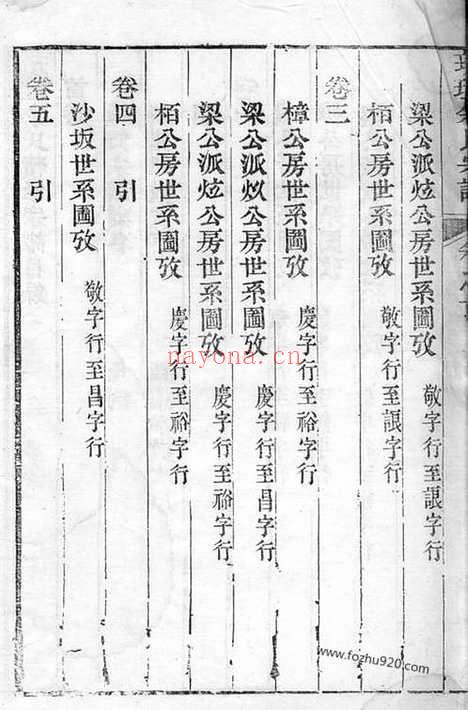 梁公派炫公房世系圖攷 敬字行至詪字行
栢公房世系圖攷 敬字行至詪字行
卷三
樟公房世系圖攷 慶字行至裕字行
梁公派㶤公房世系圖攷 慶字行至昌字行
梁公派炫公房世系圖攷 慶字行至裕字行
栢公房世系圖攷 慶字行至裕字行
卷四 引
沙坂世系圖攷 敬字行至昌字行
卷五 引
nayona.cn
www.fozhu920.com